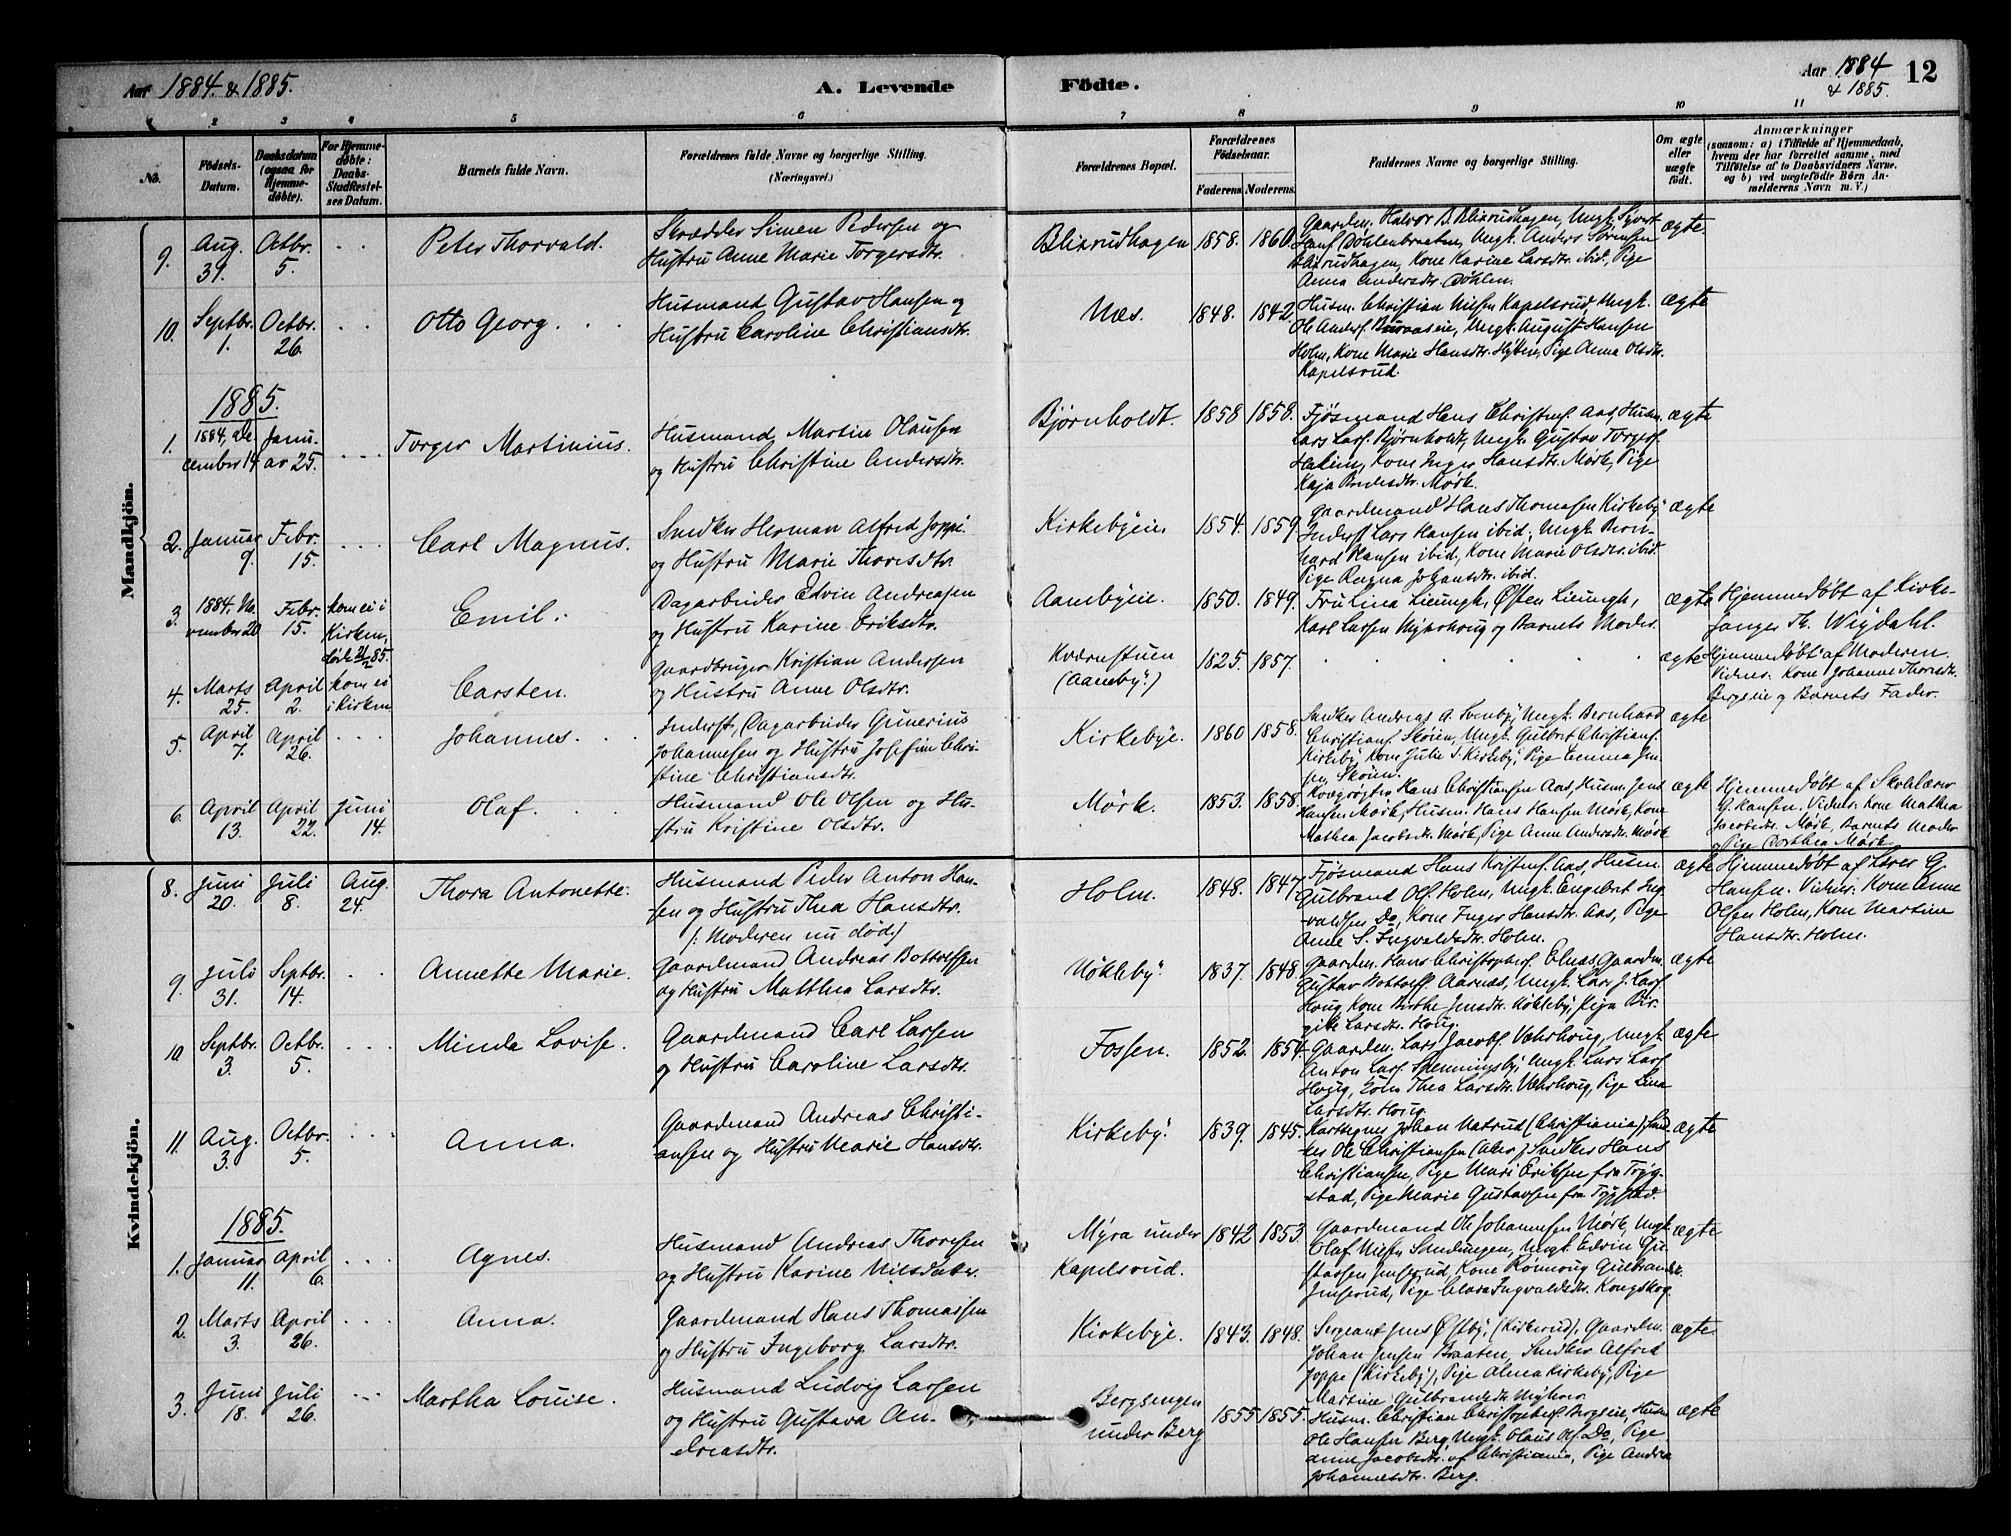 Aar 1884 & 1885.
A. Levende
Födte.
Aar 1884
& 1885.
12
1 2 3 4 5 6 7 8 9 10 11
No.
Födsels-
Datum.
Daabsdatum
(ogsaa for
Hjemme-
døbte).
For Hjemme-
døbte:
Daabs-
Stadfæstel-
ses Datum.
Barnets fulde Navn.
Forældrenes fulde Navne og borgerlige Stilling.
(Næringsvei.)
Forældrenes Bopæl.
Forældrenes
Födselsaar.
Faderens. Moderens.
Faddernes Navne og borgerlige Stilling.
Om ægte
eller
uægte
født.
Anmærkninger
(saasom: a) i Tilfælde af Hjemmedaab,
hvem der har forrettet samme, med
Tilføielse af to Daabsvidners Navne,
og b) ved uægtefødte Børn An-
melderens Navn m. V.)
Mandkjön.
9. Aug. 31. Octbr. 5. Peter Thorvald.
Skrædder Simen Pedersen og
Hustru Anne Marie Torgersdtr.
Blixrudhagen 1858. 1860.
Gaardm. Halvor B. Blixrudhagen, Ungk. Syvert
Hansf. Døhlenbraaten, Ungk. Anders Sørensen
Blixrudhagen, Kone Karine Larsdtr. ibid., Pige
Anna Andersdtr. Døhlen.
ægte.
10. Septbr. 1. Octbr. 26. Otto Georg.
Husmand Gustav Hansen og
Hustru Caroline Christiansdtr.
Næs. 1848. 1842.
Husm. Christian Nilsen Kapelsrud, Ungk.
Ole Andersf. , Ungk. August Hansen
Holm, Kone Marie Hansdtr. Hytten, Pige Anna Olsdtr.
Kapelsrud.
ægte
1885.
1. 1884, De-
cember 14. Janu-
ar 25. Torger Martinius.
Husmand Martin Olausen
og Hustru Christine Andersdtr.
Bjørnholdt. 1858 1858.
Fjösmand Hans Christensf. Aas, Husm.
Lars Larsf. Bjørnholdt, Ungk. Gustav Torgersf.
, Kone Inger Hansdtr. Mørk, Pige
Kaja Mørk.
ægte
2. Januar 9. Febr. 15. Carl Magnus.
Snedker Herman Alfred Joppe
og Hustru Marie Thoresdtr.
Kirkebyeie. 1854. 1859.
Gaardmand Hans Thomasen Kirkeby
Inderst Lars Hansen ibid., Ungk. Bern-
hard Hansen ibid., Kone Marie Olsdtr. ibid.
Pige Ragna Johansdtr. ibid.
ægte
3. 1884. No-
vember 20 Febr. 15. kom ei i
Kirken,
døde 21/2 85.
Emil.
Dagarbeider Edvin Andreasen
og Hustru Karine Eriksdtr.
Aamebyeie. 1850. 1849.
Fru Lina Lieungh, Østen Lieungh,
Karl Larsen Myhrhoug og Barnets Moder.
ægte
Hjemmedøbt af Kirke-
sanger Th. Wigdahl.
4. Marts 25. April 2. kom ei
i Kirken
Carsten.
Gaardbruger Kristian Andersen
og Hustru Anne Olsdtr.
Kværnstuen
(Aameby.) 1825. 1857.
ægte
Hjemmedøbt af Moderen.
Vidner. Kone Johanne Thorsdtr.
Bergseie og Barnets Fader.
5. April 7. April 26. Johannes.
Inderst, Dagarbeider Gunerius
Johannesen og Hustru Josefine Chri-
stine Christiansdtr.
Kirkebye. 1860 1858.
Snedker Andreas A. Svenby, Ungk. Bernhard
Christiansf. Skøien, Ungk. Gulbrt. Christiansf.
Kirkeby, Kone Julie S. Kirkeby, Pige Emma Jen-
sen, Skøien.
ægte
6. April 13. April 22. Juni 14. Olaf.
Husmand Ole Olsen og Hu-
stru Kristine Olsdtr.
Mørk. 1853. 1858.
Kvægrøgter Hans Christiansen Aas, Husm. Jens
Hansen Mørk, Husm. Hans Hansen Mørk, Kone
Mathea Jacobsdtr. Mørk, Pige Anne Andersdtr. Mørk
ægte
Hjemmedøbt af Skolelærer
G. Hansen. Vidner. Kone Mathea
Jacobsdtr. Mørk, Barnets Moder
og Pige Dorthea Mørk.
Kvindekjön.
8. Juni 20. Juli 8. Aug. 24. Thora Antonette.
Husmand Peder Anton Han-
sen og Hustru Thea Hansdtr.
(: Moderen nu død.)
Holm. 1848. 1847.
Fjøsmand Hans Kristensf. Aas, Husm.
Gulbrand Olsf. Holm, Ungk. Engebret Ing-
valdsen Do, Kone Inger Hansdtr. Aas, Pige
Anne S. Ingvaldsdtr. Holm.
ægte
Hjemmedøbt af Lærer G.
Hansen. Vidner. Kone Anne
Olsen Holm, Kone Martine
Hansdtr. Holm.
9. Juli 31. Septbr. 14. Annette Marie.
Gaardmand Andreas Bottolfsen
og Hustru Matthea Larsdtr.
Nökleby. 1837. 1848.
Gaardm. Hans Christophersf. Elnæs, Gaardm.
Gustav Bottolfsf. Aarnæs, Ungk. Lars J. Larsf.
Houg, Kone Birthe Jensdtr. Nökleby, Pige Bir-
gitte Larsdtr. Houg.
ægte
10 Septbr. 3. Octbr. 5. Minda Lovise.
Gaardmand Carl Larsen
og Hustru Caroline Larsdtr.
Fossen. 1852. 1854.
Gaardm. Lars Jacobsf. Væhrhoug, Ungk.
Anton Larsf. Spenningsby, Ungk. Lars Larsf.
Houg, Kone Thea Larsdtr. Væhrhoug, Pige Lina
Larsdtr. Houg.
ægte
11. Aug. 3. Octbr. 5. Anna.
Gaardmand Andreas Christi-
ansen og Hustru Marie Hansdtr.
Kirkeby. 1839. 1845.
Johan Natrud (Christiania), Sned-
ker Ole Christiansen (Aker), Snedker Hans
Christiansen, Pige Mari Eriksen fra Trøg-
stad, Pige Marie Gustavsen fra Trøgstad.
ægte
1885.
1. Januar 11. April 6. Agnes.
Husmand Andreas Thoresen
og Hustru Karine Nilsdatter.
Myra under
Kapelsrud. 1842 1853.
Gaardmand Ole Johannesen Mörk, Ungk.
Olaf Nilsen Sandungen, Ungk. Edvin Gu-
stavsen Jenserud, Kone Rønnoug Gulbrandsdtr.
Jenserud, Pige Clara Ingvaldsdtr. Kongskog.
ægte
2. Marts 3. April 26. Anna.
Gaardmand Hans Thomassen
og Hustru Ingeborg Larsdtr.
Kirkebye. 1843. 1848.
Sergeant Jens Østby, (Kirkerud), Gaardm.
Johan Jensen Braaten, Snedker Alfred
Joppe (Kirkeby), Pige Alma Kirkeby, Pige
Martine Gulbrandsdtr. Myhrer.
ægte.
3. Juni 18. Juli 26. Martha Louise.
Husmand Ludvig Larsen
og Hustru Gustava An-
dreasdtr.
Bergsengen
under Berg 1855 1855.
Husm. Christian Christophersf. Bergseie, Husm.
Ole Hansen Berg, Ungk. Olaus Olsf. Do, Pige
Anne Jacobsdtr. af Christiania, Pige Andrea
Johannesdtr. Berg.
ægte